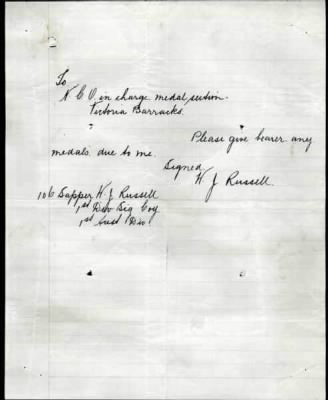 To
N C O in charge medal section.
Victoria Barracks.
Please give bearer any
medals due to me.
Signed
W J Russell.
106 Sapper W. J Russell
1st Div Sig Coy
1st Aust Div